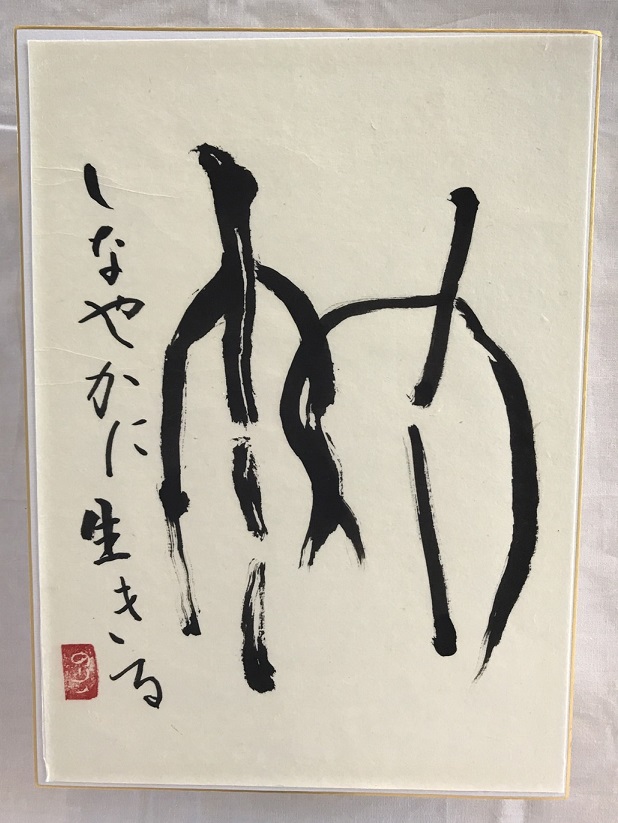 竹
しなやかに生きる